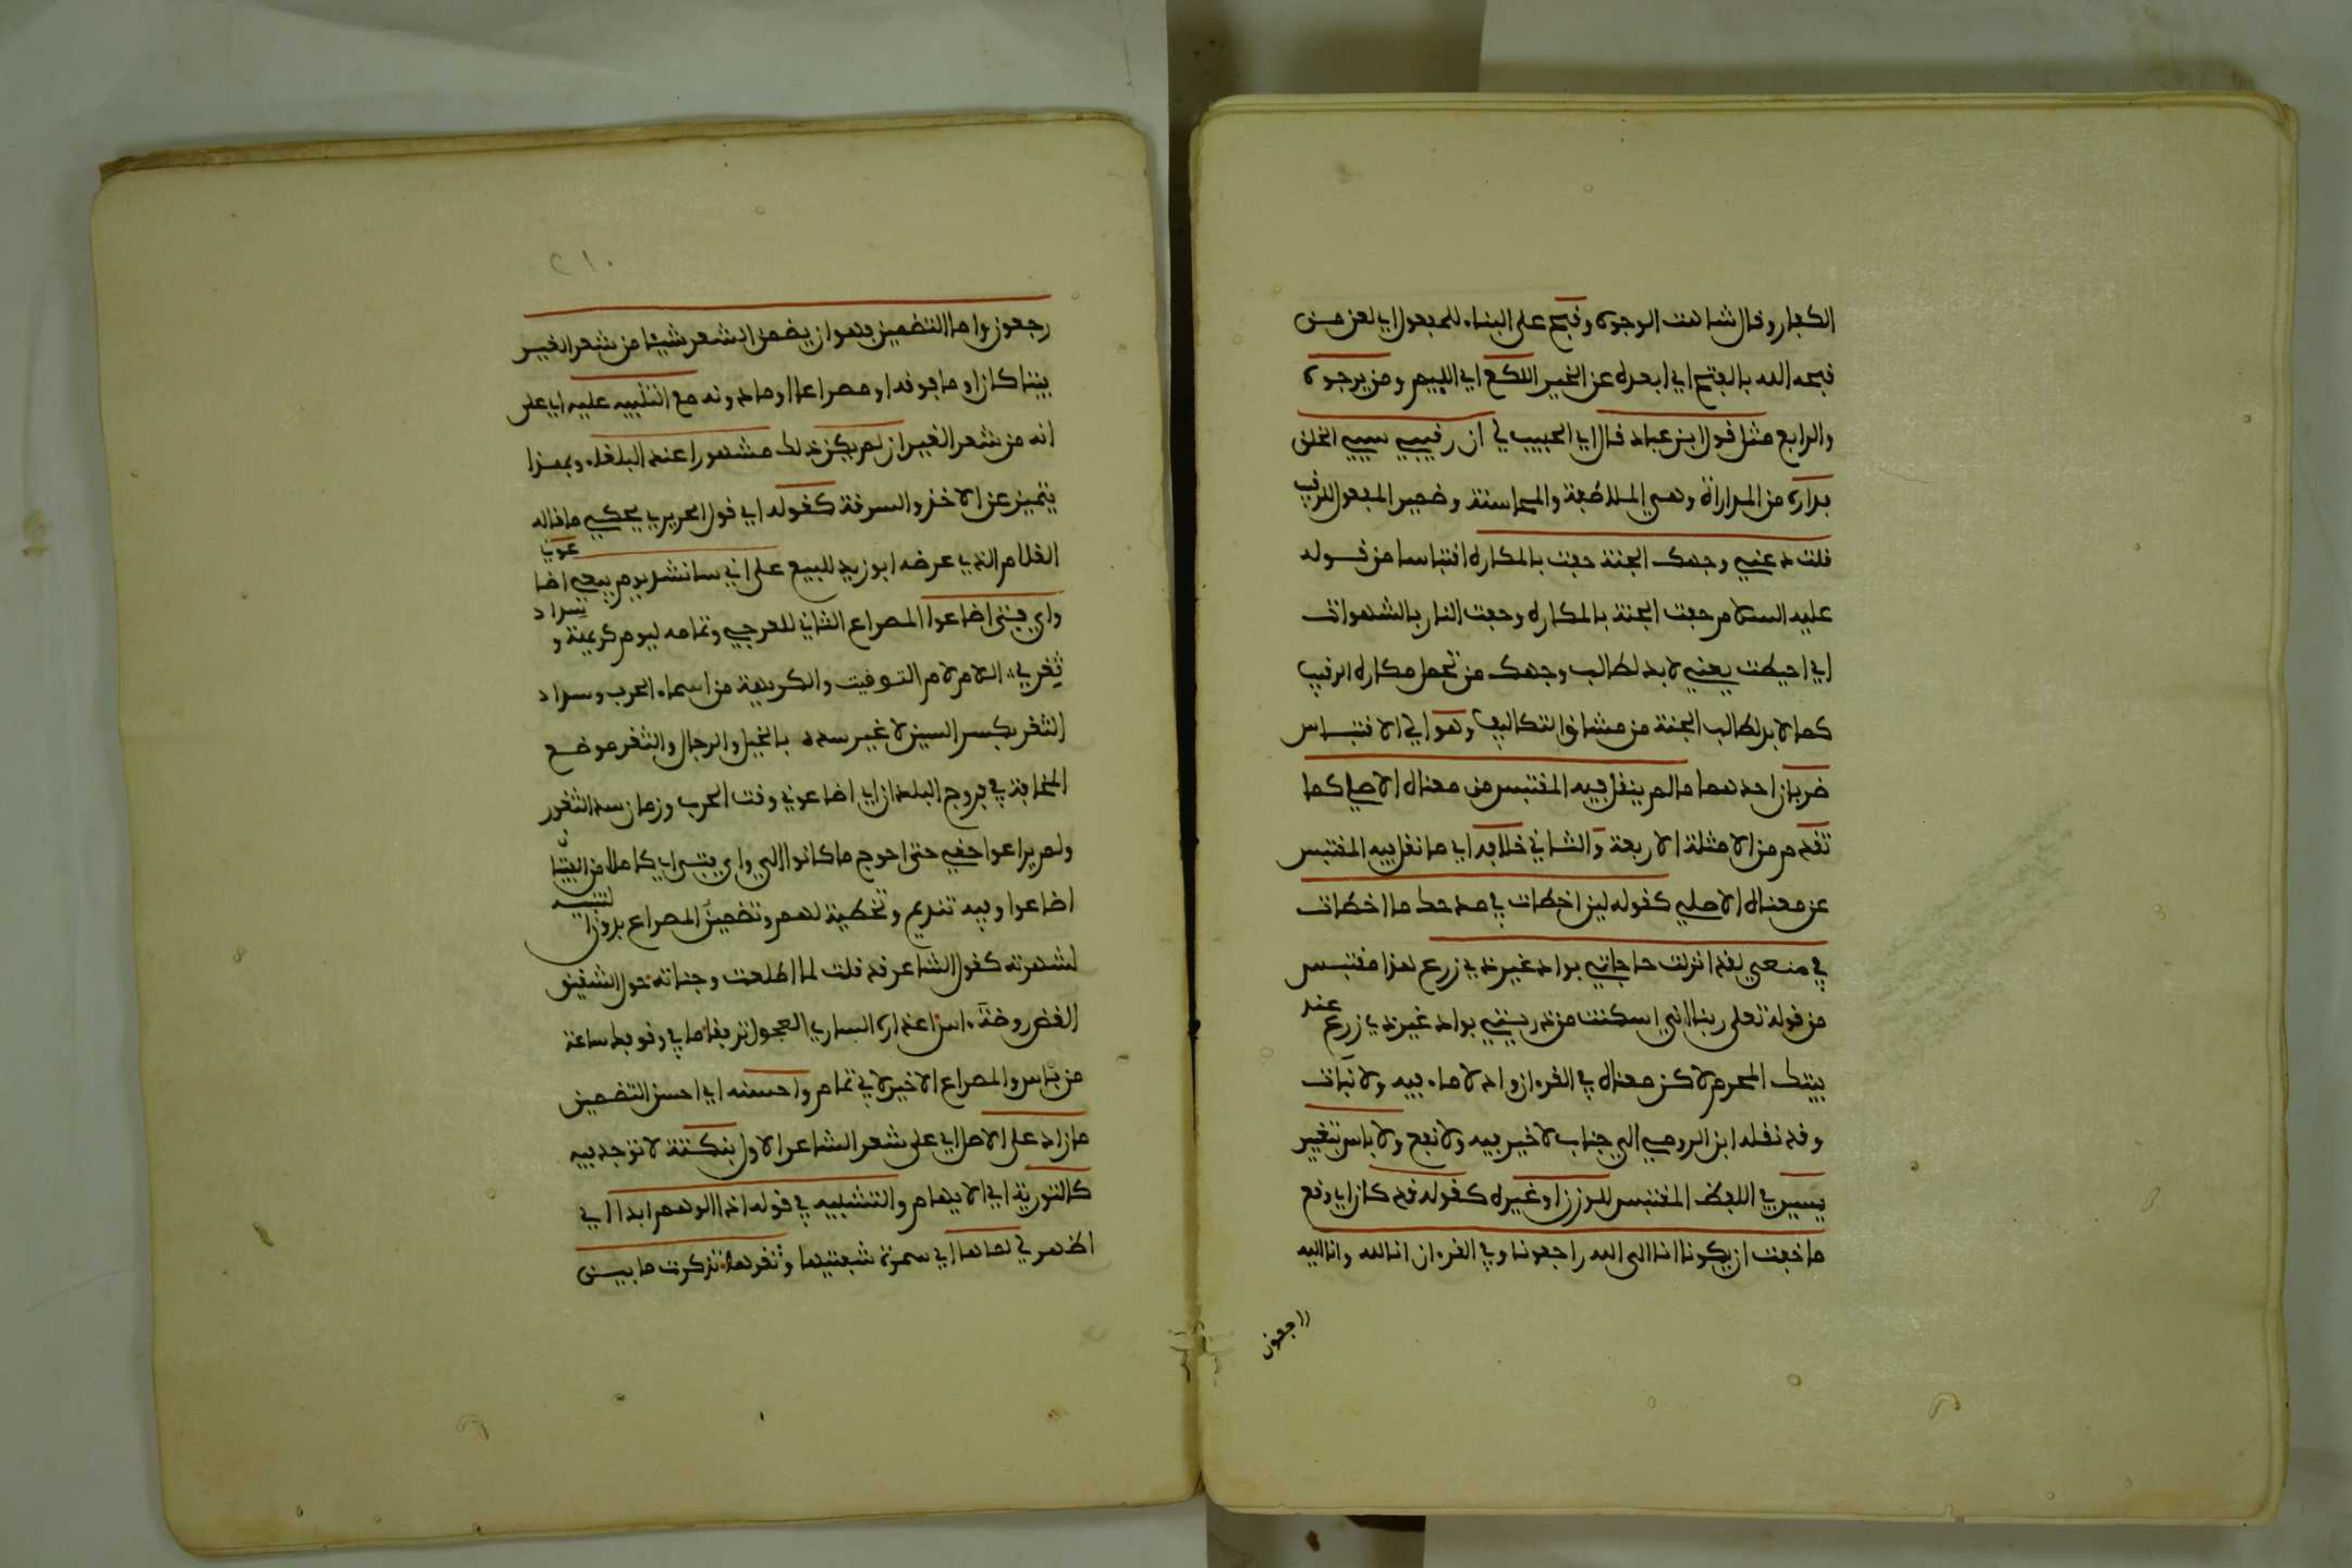 الكفار وقال شاهت الوجوه وقبح على البناء للمفعول اي لعن من
قبحه الله بالفتح اي ابعده عن الخير اللكع اي اللييم ومن يرجوه
والرابع مثل قول ابن عباد قال اي الحبيب لي ان رقيبي سيي الخلق
بداره من المداراة وهي الملاطفة والمحاسنة وضمير المفعول للرقيب
قلت دعني وجهك الجنة حفت بالمكاره اقتباسا من قوله
عليه السلام حفت الجنة بالمكاره وحفت النار بالشهوات
اي احيطت يعني لا بد لطالب وجهك من تحمل مكاره الرقيب
كما لا بد لطالب الجنة من مشاق التكاليف وهو اي الاقتباس
ضربان احدهما ما لم ينقل فيه المقتبس من معناه الاصلي كما
تقدم من الامثلة الاربعة والثاني خلافه اي ما نقل فيه المقتبس
عن معناه الاصلي كقوله لين اخطات في مدحك ما اخطات
في منعي لقد انزلت حاجاتي بواد غير ذي زرع هذا مقتبس
من قوله تعلى ربنا اني اسكنت من ذريتي بواد غير ذي زرع عند
بيتك المحرم لاكن معناه في القرءان واد لا ماء فيه ولا نبات
وقد نقله ابن الرومي الى جناب لا خير فيه ولا نفع ولا باس بتغيير
يسير في اللفظ المقتبس للوزن او غيره كقوله قد كان اي وقع
ما خفت ان يكونا انا الى الله راجعونا وفي القرءان انا لله وانا اليه
راجعون
٢١٠
رجعون واما التضمين فهو ان يضمن الشعر شيئا من شعر الغير
بيتا كان او ما فوقه او مصراعا او ما دونه مع التنبيه عليه اي على
انه من شعر الغير ان لم يكن ذلك مشهورا عند البلغاء وبهذا
يتميز عن الاخذ والسرقة كقوله اي قول الحريري يحكي ما قاله
الغلام الذي عرضه ابو زيد للبيع على اني سانشد يوم بيعي اضاعوني
واي فتى اضاعوا المصراع الثاني للعرجي وتمامه ليوم كريهة وسداد
ثغر اللام لام التوقيت والكريهة من اسماء الحرب وسداد
الثغر بكسر السين لا غير سده بالخيل والرجال والثغر موضع
المخافة في فروج البلدان اي اضاعوني وقت الحرب وزمان سد الثغور
ولم يراعوا حقي حتى احوج ما كانوا الي واي فتى اي كاملا من الفتيان
اضاعوا وفيه تنديم وتخطية لهم وتضمين المصراع بدون التنبيه
لشهرته كقول الشاعر قد قلت لما اطلعت وجناته حول الشقيق
الغض روضة ءاس اعذاره الساري العجول ترفقا ما في وقوفك ساعة
من باس والمصراع الاخير لابي تمام واحسنه اي احسن التضمين
ما زاد على الاصل اي على شعر الشاعر الاول بنكتة لا توجد فيه
كالتورية اي الايهام والتشبيه في قوله اذا الوهم ابدا اي
اظهر لي لماها اي سمرة شفتيها وثغرها تذكرت ما بين